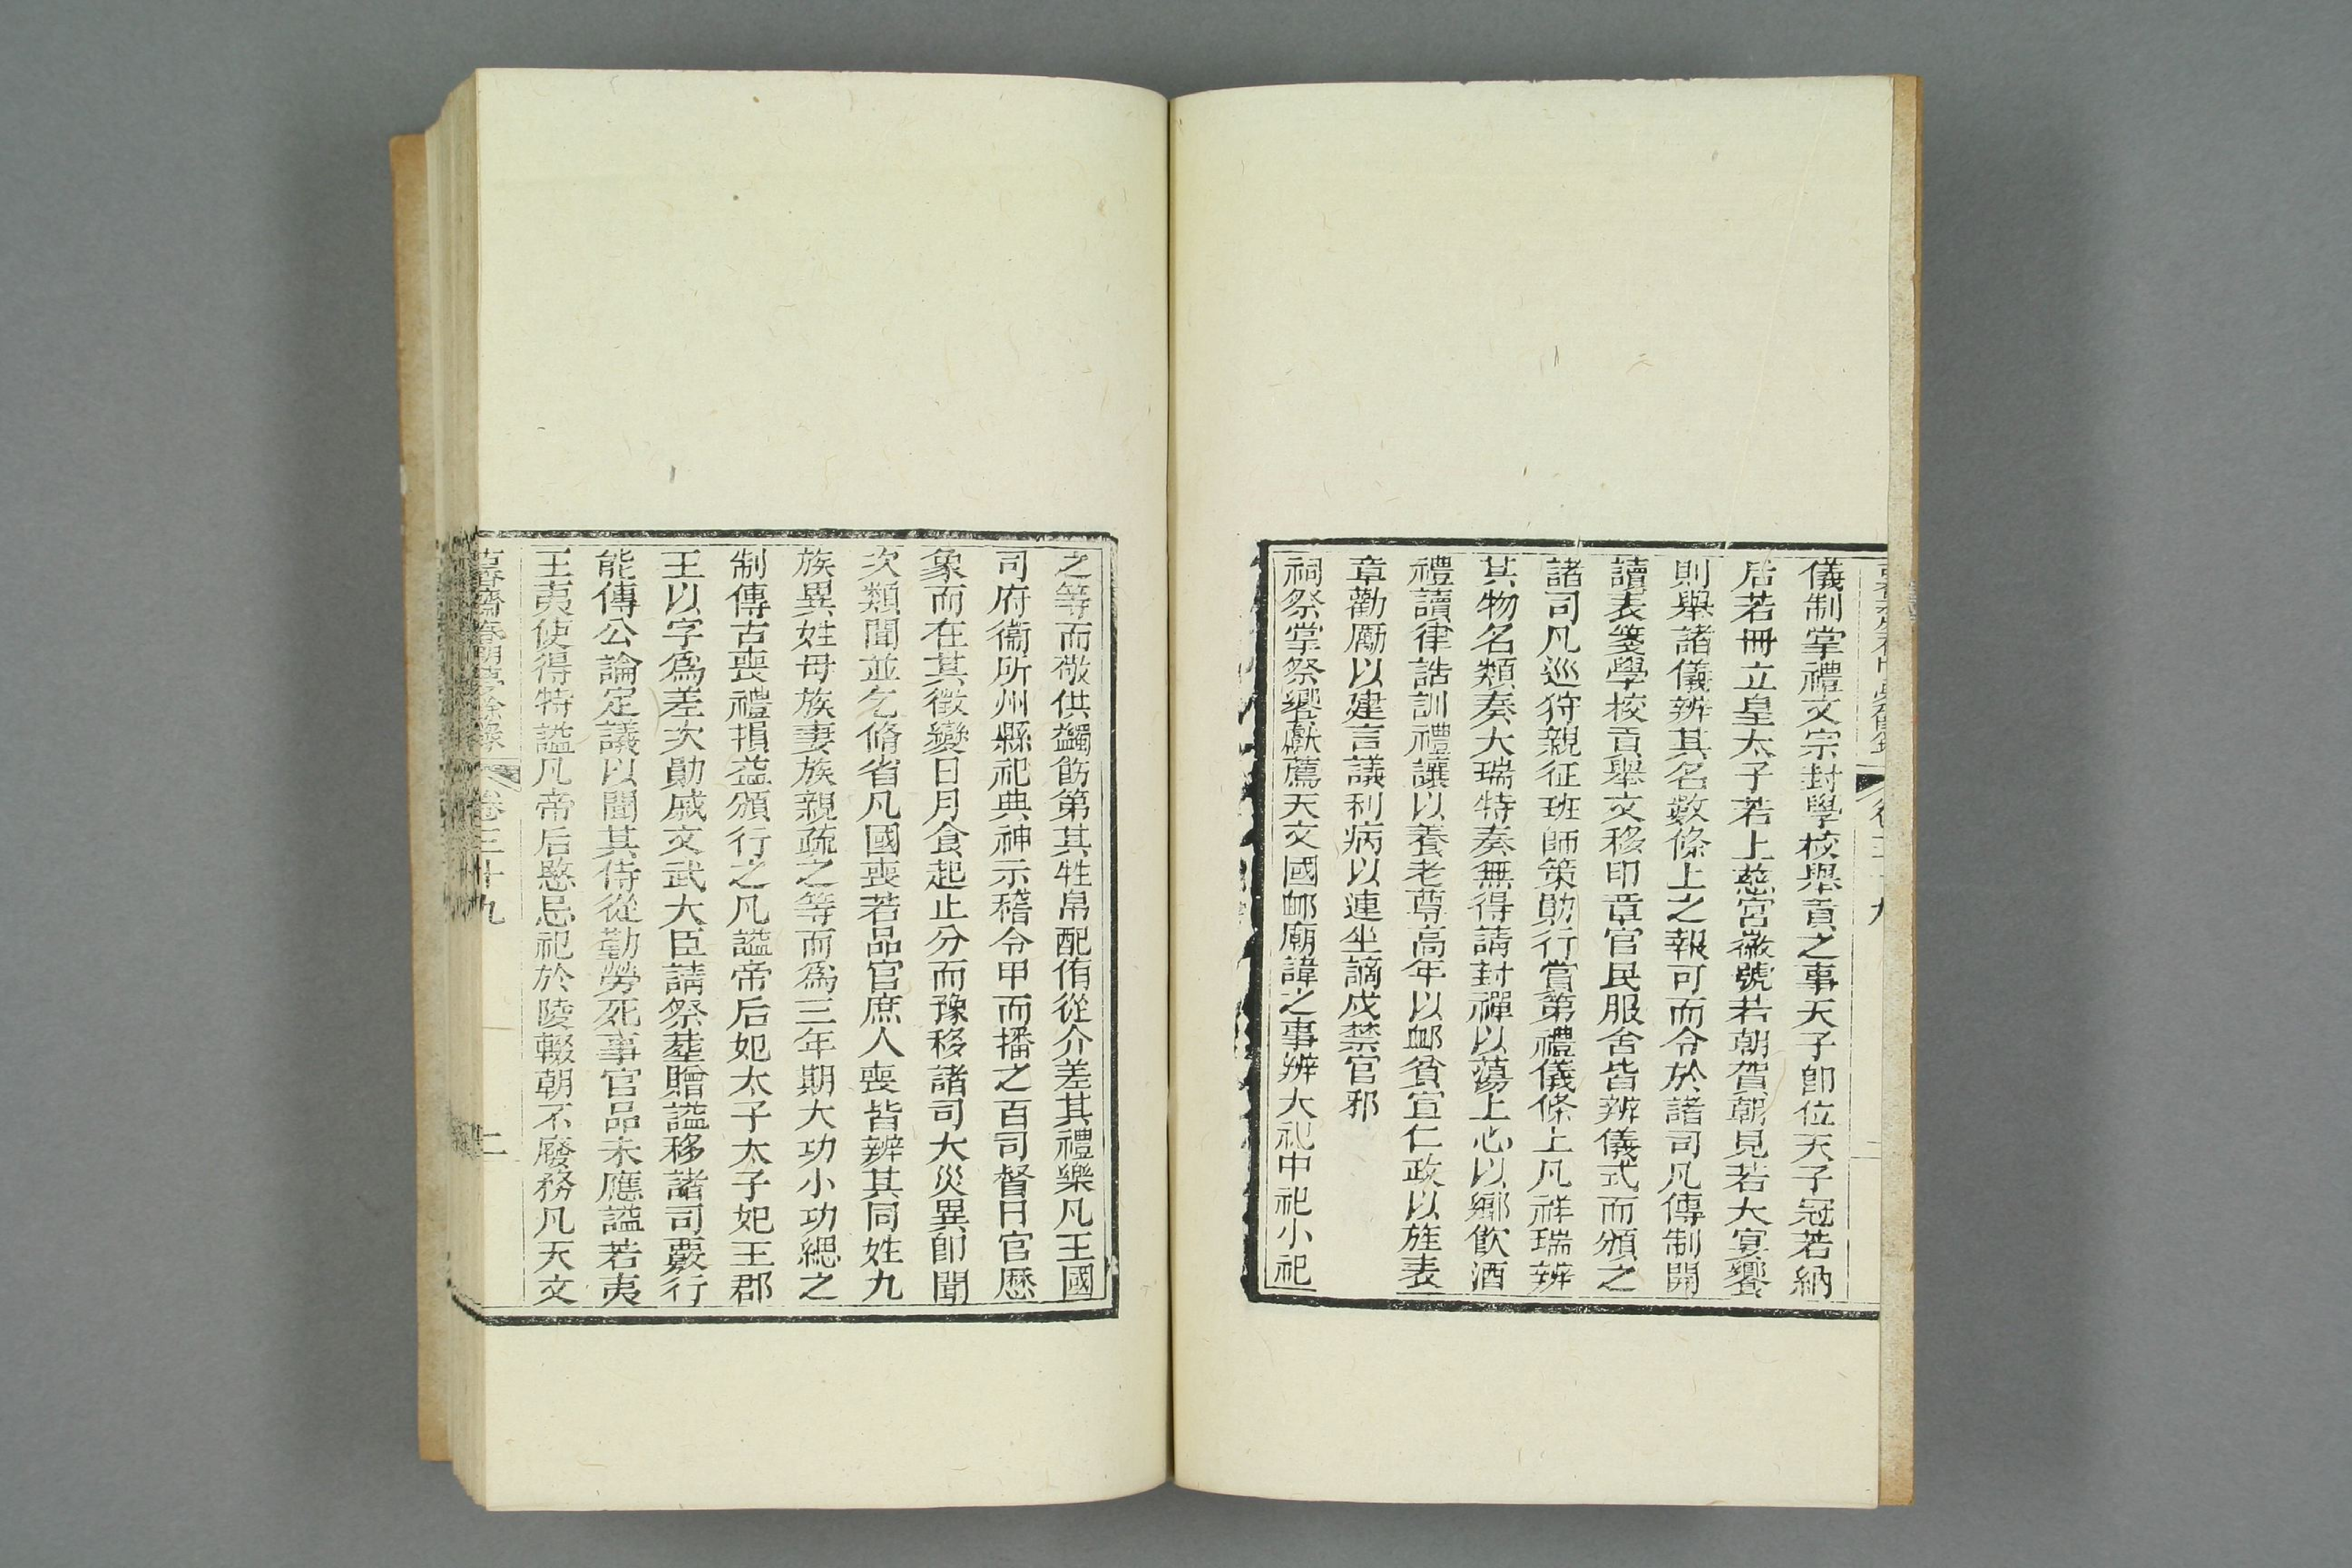 儀制掌禮文宗封學校舉貢之事天子卽位天子冠若納
后若冊立皇太子若上慈宮徽號若朝賀朝見若大宴饗
則舉諸儀辨其名數條上之報可而令於諸司凡傳制開
讀表箋學校貢舉文移印章官民服舍皆辨儀式而頒之
諸司凡巡狩親征班師策勛行賞第禮儀條上凡祥瑞辨
其物名類奏大瑞特奏無得請封禪以蕩上心以鄉飲酒
禮讀律誥訓禮讓以養老尊高年以卹貧宣仁政以旌表
章勸勵以建言議利病以連坐謫戍禁官邪
祠祭掌祭饗獻薦天文國卹廟諱之事辨大祀中祀小祀
之等而敬供蠲飭第其牲帛配侑從介差其禮樂凡王國
司府衞所州縣祀典神示稽令甲而播之百司督日官歷
象而在其徵變日月食起止分而豫移諸司大災異卽聞
次類聞並乞脩省凡國喪若品官庶人喪皆辨其同姓九
族異姓母族妻族親疏之等而爲三年期大功小功緦之
制傳古喪禮損益頒行之凡謚帝后妃太子太子妃王郡
王以字爲差次勛戚文武大臣請祭葬贈謚移諸司覈行
能傳公論定議以聞其侍從勤勞死事官品未應謚若夷
王夷使得特謚凡帝后愍忌祀於陵輟朝不廢務凡天文
古香齋春明夢餘錄 卷三十九 二